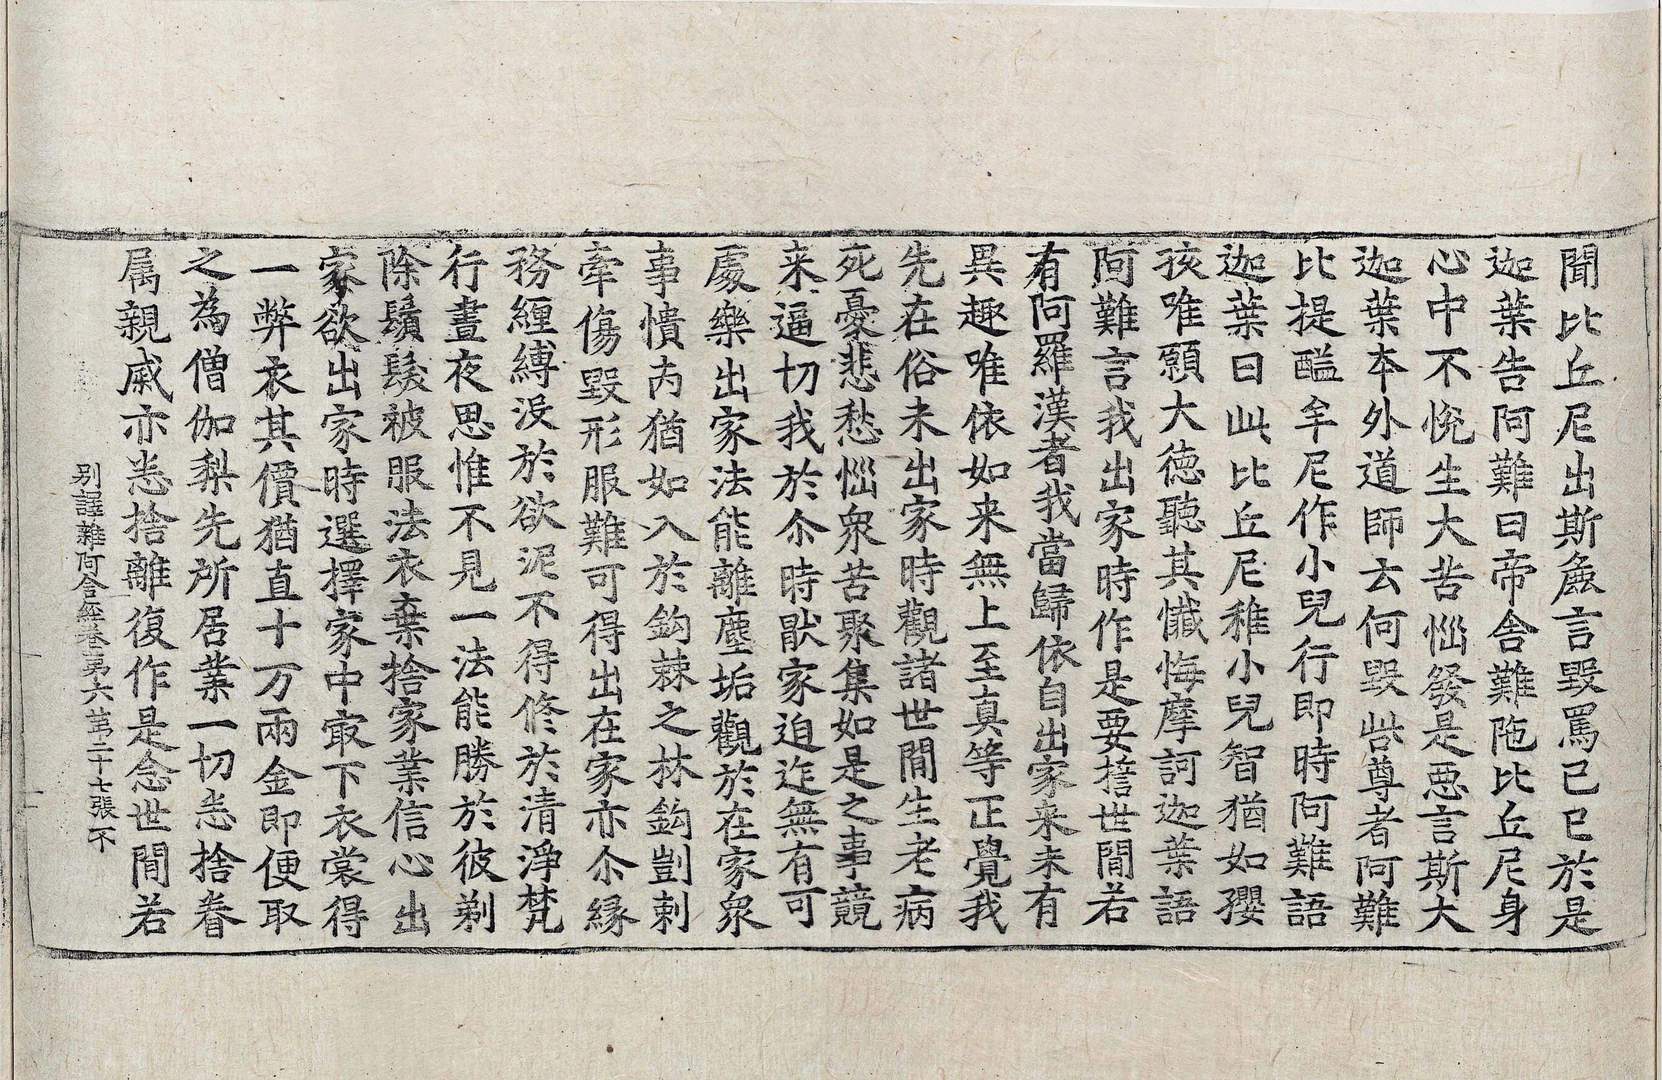 聞比丘尼出斯麁言毀罵已已於是
迦葉告阿難曰帝舍難陁比丘尼身
心中不恱生大苦惱發是惡言斯大
迦葉本外道師云何毀呰尊者阿難
比提醯牟尼作小兒行即時阿難語
迦葉曰此比丘尼稚小兒智猶如孾
孩唯願大徳聽其懺悔摩訶迦葉語
阿難言我出家時作是要擔世間若
有阿羅漢者我當歸依自出家来未有
異趣唯依如来無上至真等正覺我
先在俗未出家時觀諸世間生老病
死憂悲愁惱衆苦聚集如是之事競
来逼切我於尒時猒家迫迮無有可
處樂出家法能離塵垢觀於在家衆
事憒丙猶如入於鈎棘之林鈎剴刺
牽傷毀形服難可得出在家亦尒縁
務纏縛沒於欲泥不得修於清淨梵
行晝夜思惟不見一法能勝於彼剃
除鬚髮被服法衣棄捨家業信心出
家欲出家時選擇家中㝡下衣裳得
一弊衣其價猶直十万兩金即便取
之為僧伽梨先所居業一切悉捨眷
属親戚亦悉捨離復作是念世間若
别譯雜阿含經卷第六 苐二十七張 不